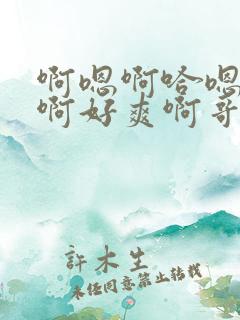 啊嗯啊哈嗯
啊好爽啊哥
許木生
未经同意禁止转载